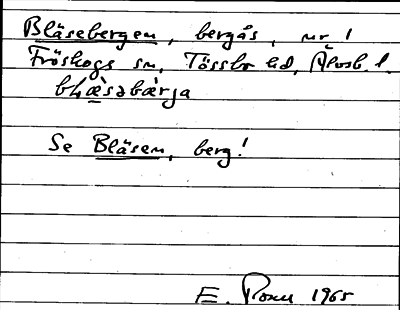 Bläsebergen, bergås, nr 1
Fröskogs sn, Tössbo hd, Älvsb. l.
bɫæ̀səbærja
Se Bläsen, berg!
E. 1965